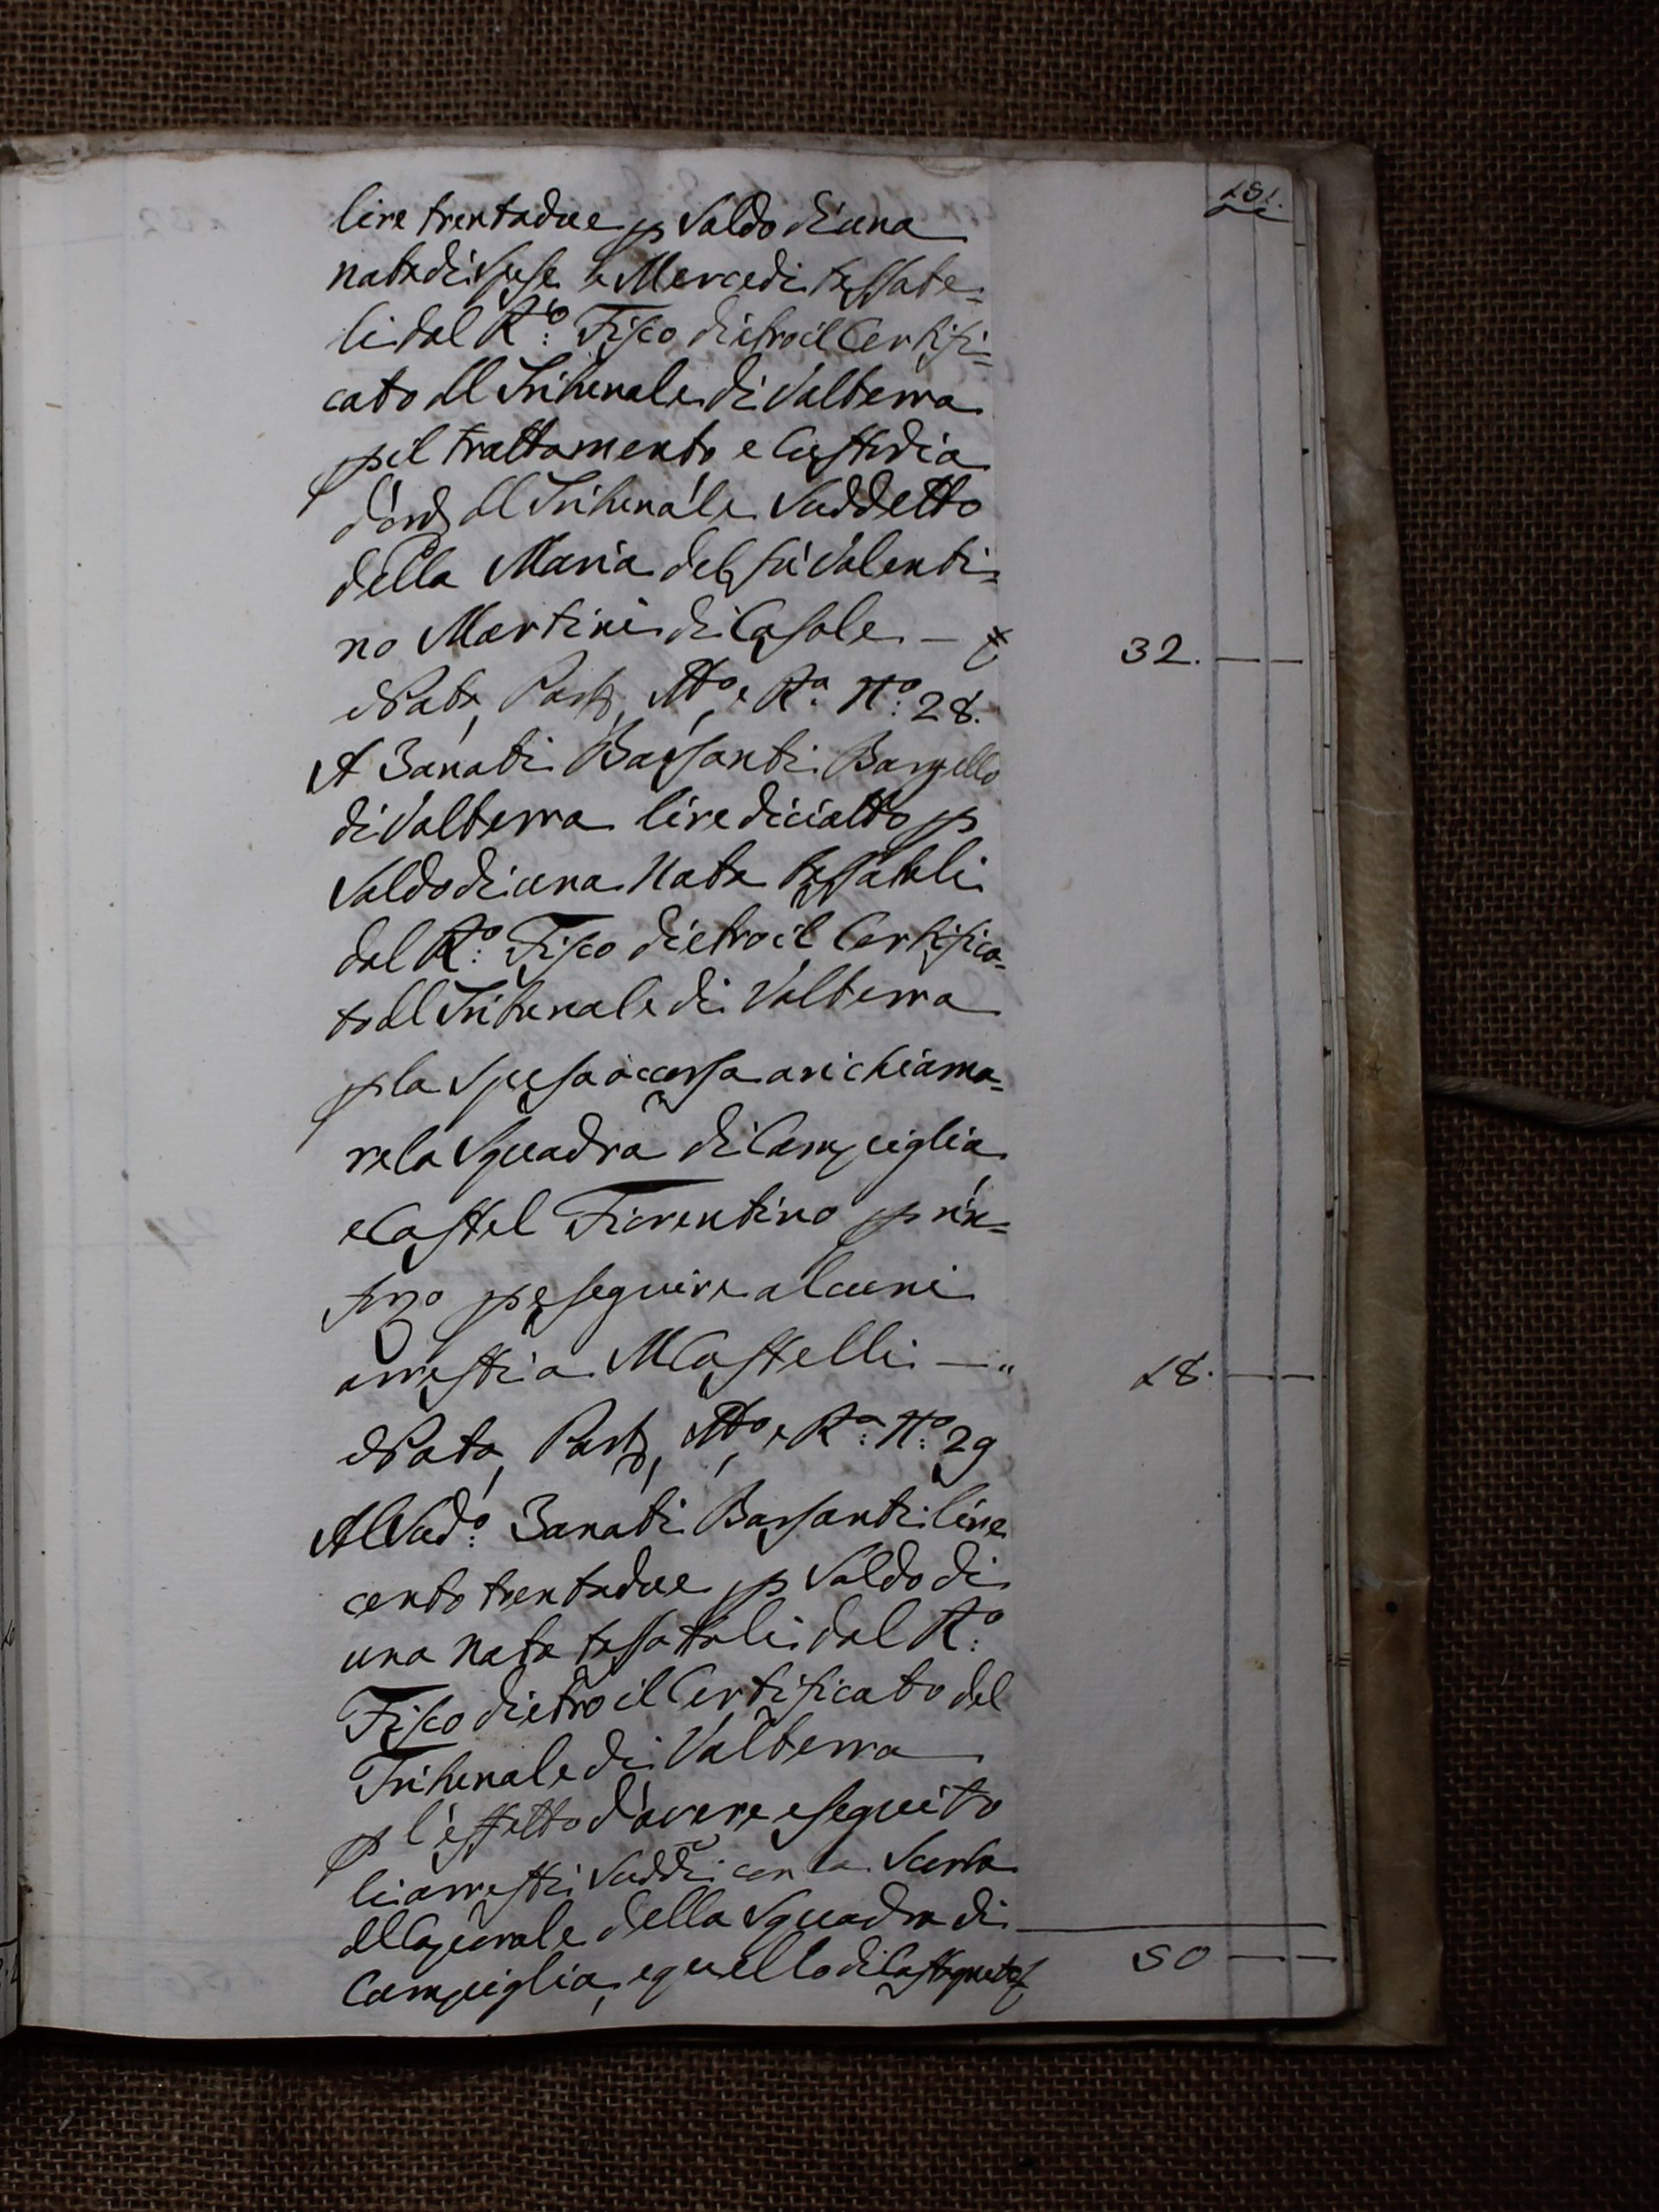 151.
lire trentadue p Saldo di una
nota di Spese e Mercedi tassate=
li dal R.o Fisco dietro il Certifi=
cato dl Tribunale di Volterra
p il trattamento e Custodia
d'ord dl Tribunale Suddetto
della Maria del fù Valenti=
no Martini di Casole — £ 32. — —
N.o 28.
A Zanobi Bassanti Bargello
di Volterra lire diciotto p
Saldo di una Nota tassatali
dal R.o Fisco dietro il Certifica=
to dl Tribunale di Volterra
p la Spesa occorsa a richiama=
re la Squadra di Campiglia
e Castel Fiorentino p rin=
forzo p eseguire alcuni
arresti a MCastelli — " 18. — —
N.o 29
Al Sud.o Zanobi Bassanti lire
cento trentadue p Saldo di
una Nota tassatali dal R.o
Fisco dietro il Certificato del
Tribunale di Volterra
p l'effetto d'avere eseguito
li arresti Suddi con la Scorta
dl Caporale della Squadra di
Campiglia, e quello di 50 — —